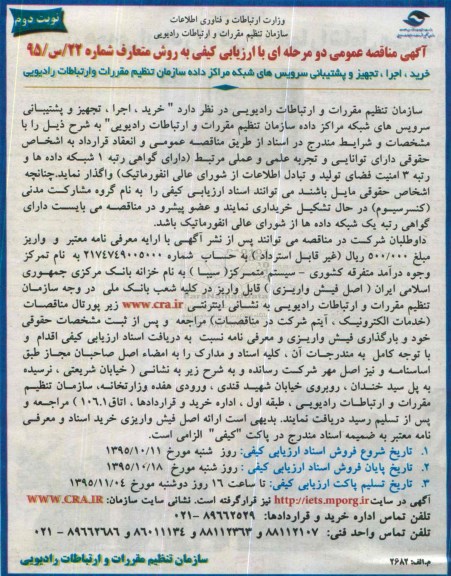 وزارت ارتباطات و فناوری اطلاعات
سازمان تنظیم مقررات و ارتباطات رادیویی
نوبت دوم
آگهی مناقصه عمومی دو مرحله ای با ارزیابی کیفی به روش متعارف شماره ۲۲/س/۹۵
خرید ، اجرا ، تجهیز و پشتیبانی سرویس های شبکه مراکز داده سازمان تنظیم مقررات وارتباطات رادیویی
سازمان تنظیم مقررات و ارتباطات رادیویی در نظر دارد " خرید ، اجرا ، تجهیز و پشتیبانی
سرویس های شبکه مراکز داده سازمان تنظیم مقررات و ارتباطات رادیویی" به شرح ذیل را با
مشخصات و شرایط مندرج در اسناد از طریق مناقصه عمومی و انعقاد قرارداد به اشخاص
حقوقی دارای توانایی و تجربه علمی و عملی مرتبط (دارای گواهی رتبه ۱ شبکه داده ها و
رتبه ۳ امنیت فضای تولید و تبادل اطلاعات از شورای عالی انفورماتیک) واگذار نماید.چنانچه
اشخاص حقوقی مایل باشند می توانند اسناد ارزیابی کیفی را به نام گروه مشارکت مدنی
(کنسرسیوم) در حال تشکیل خریداری نمایند و عضو پیشرو در مناقصه می بایست دارای
گواهی رتبه یک شبکه داده ها از شورای عالی انفورماتیک باشد.
داوطلبان شرکت در مناقصه می توانند پس از نشر آگهی با ارایه معرفی نامه معتبر و واریز
مبلغ ۵۰۰/۰۰۰ ریال (غیر قابل استرداد ) به حساب شماره ۲۱۷۴۷۴۹۰۰۵۰۰۰ به نام تمرکز
وجوه درآمد متفرقه کشوری - سیستم متمرکز( سیبا ) به نام خزانه بانک مرکزی جمهوری
اسلامی ایران ( اصل فیش واریزی ) قابل واریز در کلیه شعب بانک ملی در وجه سازمان
تنظیم مقررات و ارتباطات رادیویی به نشانی اینترنتی www.cra.ir زیر پورتال مناقصات
(خدمات الکترونیک ، آیتم شرکت در مناقصات) مراجعه و پس از ثبت مشخصات حقوقی
خود و بارگذاری فیش واریزی و معرفی نامه نسبت به دریافت اسناد ارزیابی کیفی اقدام و
با توجه کامل به مندرجات آن ، کلیه اسناد و مدارک را به امضاء اصل صاحبان مجاز طبق
اساسنامه و نیز اصل مهر شرکت رسانده و به شرح زیر به نشانی ( خیابان شریعتی ، نرسیده
به پل سید خندان ، روبروی خیابان شهید قندی ، ورودی هفده وزارتخانه، سازمان تنظیم
مقررات و ارتباطات رادیویی ، طبقه اول ، اداره خرید و قراردادها ، اتاق۱۰۶.۱ ) مراجعه و
پس از تسلیم رسید دریافت نمایند. بدیهی است ارائه اصل فیش واریزی خرید اسناد و معرفی
نامه معتبر به ضمیمه اسناد مندرج در پاکت "کیفی" الزامی است.
۱. تاریخ شروع فروش اسناد ارزیابی کیفی: روز شنبه مورخ ۱۳۹۵/۱۰/۱۱
۲. تاریخ پایان فروش اسناد ارزیابی کیفی : روز شنبه مورخ ۱۳۹۵/۱۰/۱۸
۳. تاریخ تسلیم پاکت ارزیابی کیفی: تا ساعت ۱۶ روز دوشنبه مورخ ۱۳۹۵/۱۱/۰۴
آگهی در سایت http://iets.mporg.ir نیز قرارگرفته است. نشانی سایت سازمان: WWW.CRA.IR
تلفن تماس اداره خرید و قراردادها: ۸۹۶۶۲۵۲۹ -۰۲۱
تلفن تماس واحد فنی: ۸۸۱۱۲۱۰۷ و ۸۸۱۱۲۳۶۳ و ۸۶۰۱۱۱۳۴ و ۸۹۶۶۲۶۸۶ - ۰۲۱
سازمان تنظیم مقررات و ارتباطات رادیویی
م.الف: ۲۶۸۲